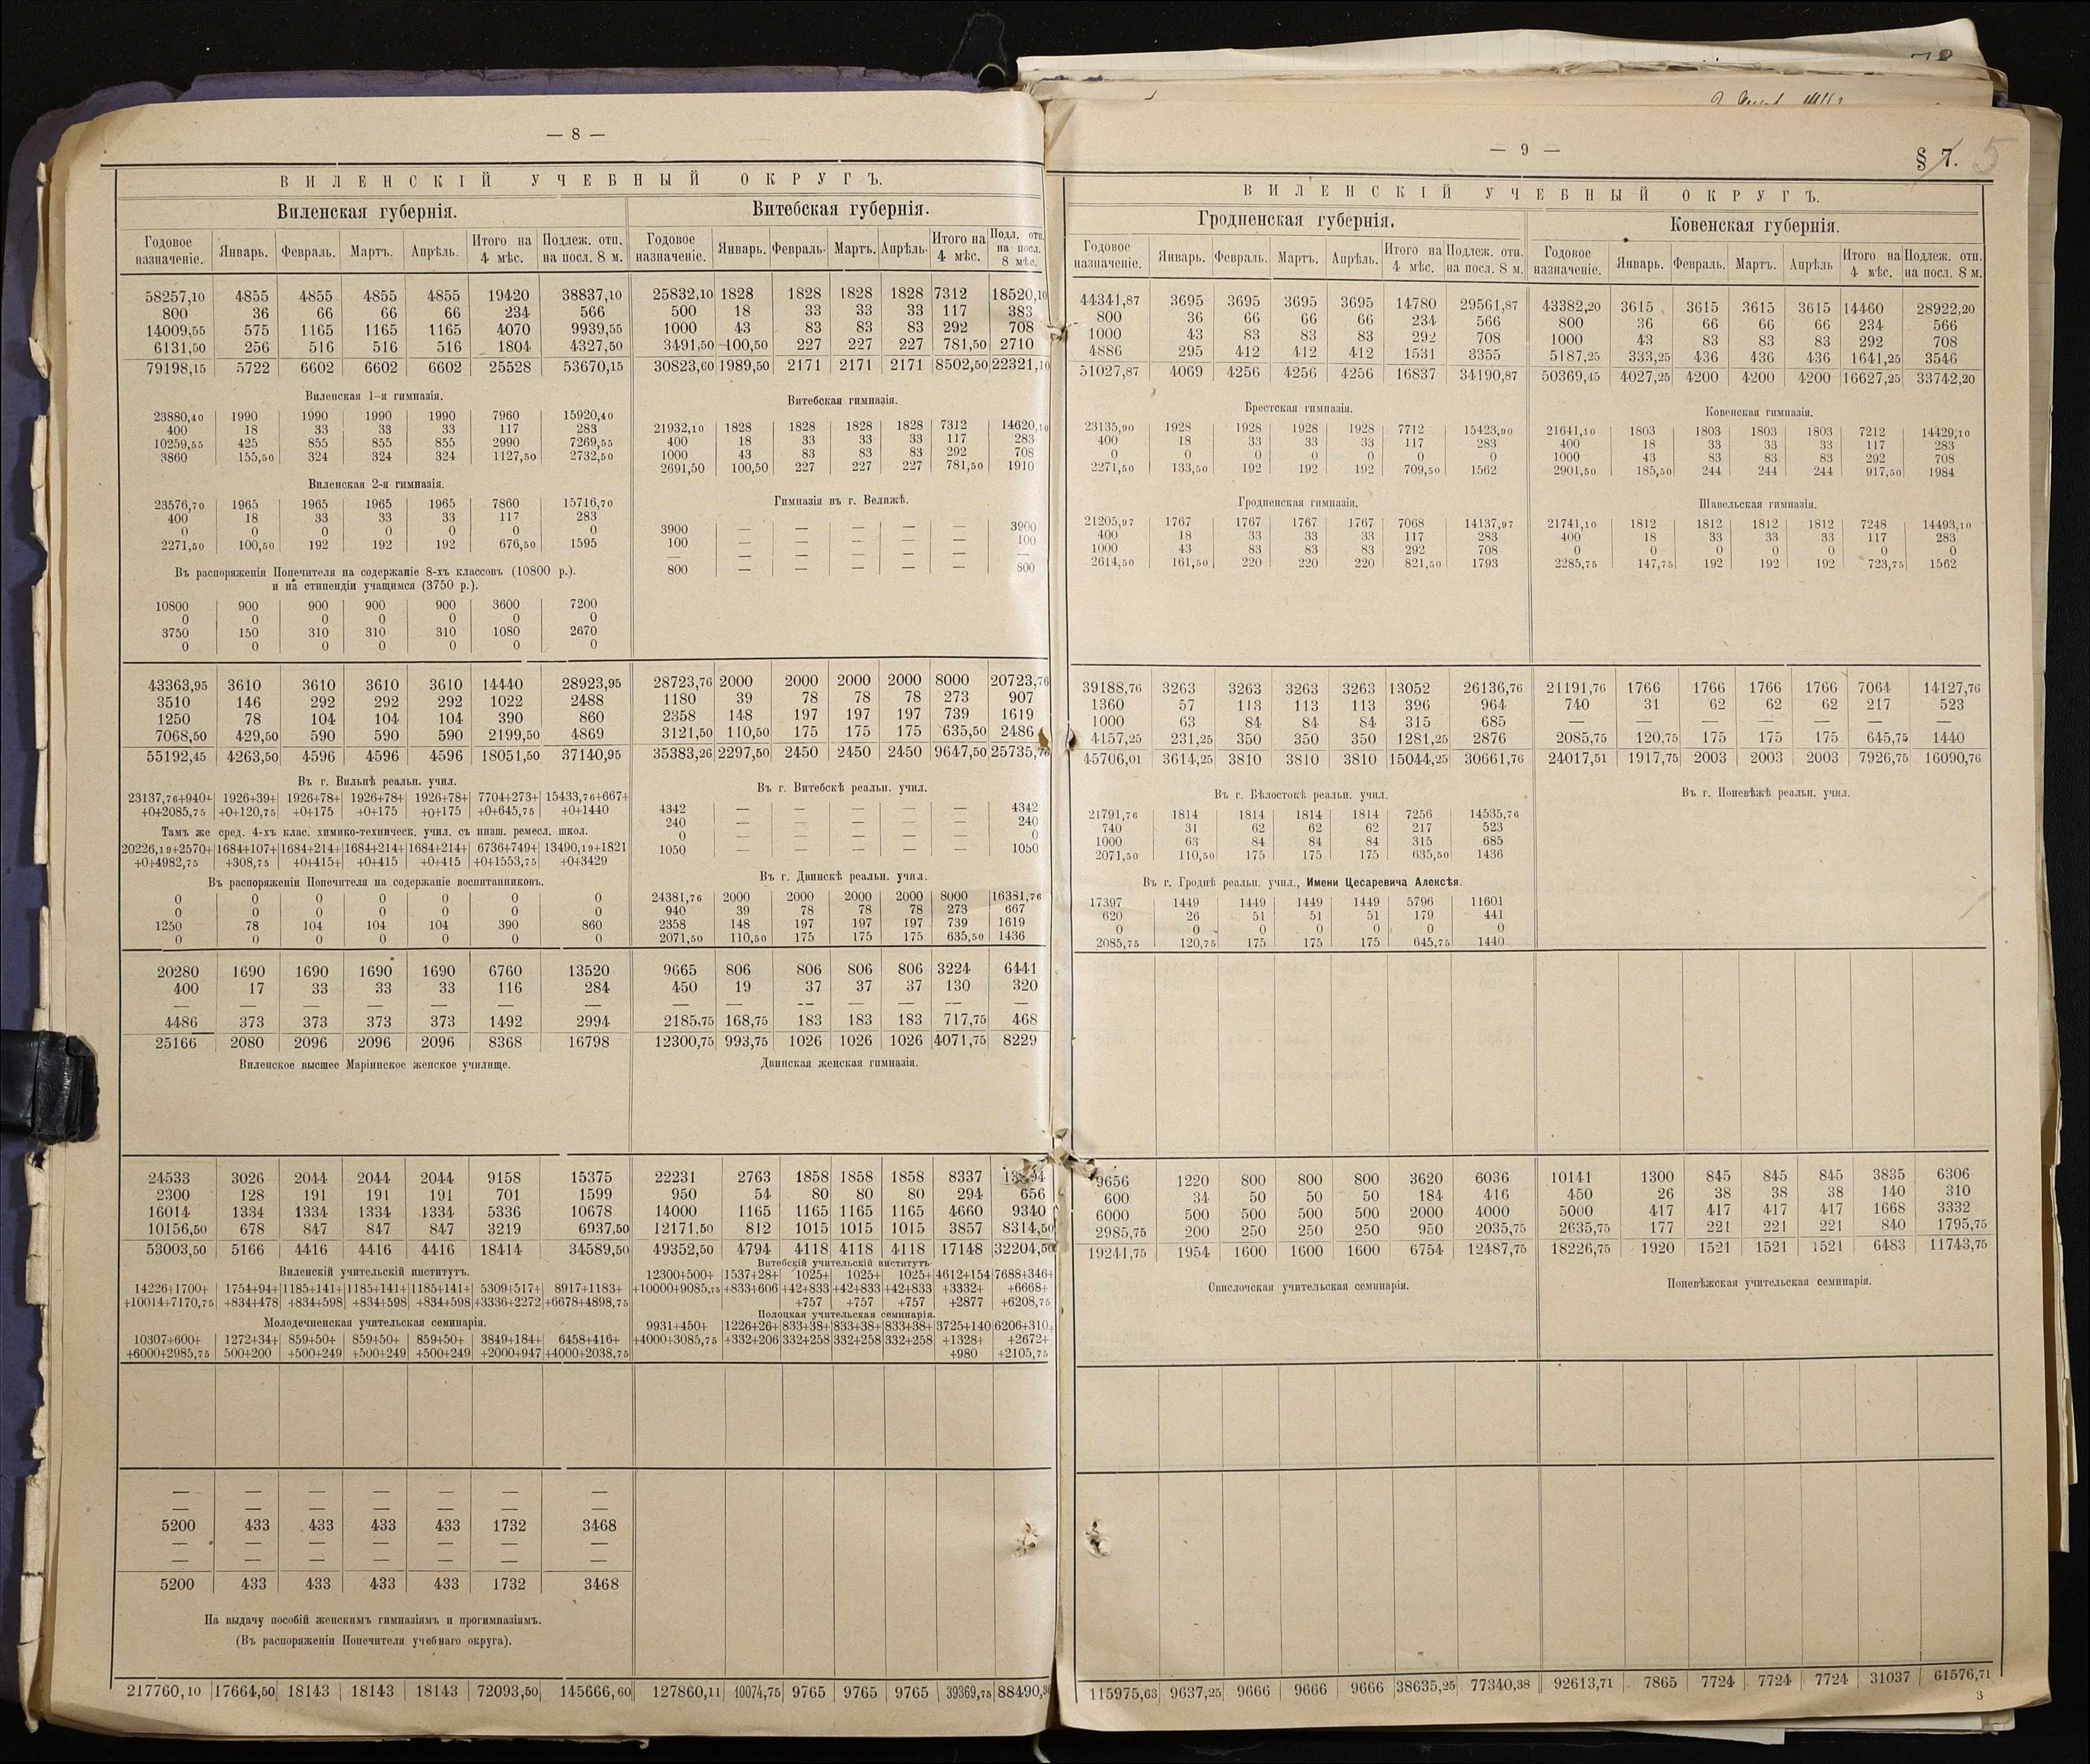 — 8 —
ВИЛЕНСКІЙ УЧЕБНЫЙ ОКРУГЪ.
Виленская губернія. Витебская губернія.
Годовое назначеніе. Январь. Февраль. Мартъ. Апрѣль. Итого на 4 мѣс. Подлеж. отп. на посл. 8 м. Годовое назначеніе. Январь. Февраль. Мартъ. Апрѣль. Итого на 4 мѣс. Подл. отп. на посл. 8 мѣс.
58257,10 4855 4855 4855 4855 19420 38837,10 25832,10 1828 1828 1828 1828 7312 18520,10
800 36 66 66 66 234 566 500 18 33 33 33 117 383
14009,55 575 1165 1165 1165 4070 9939,55 1000 43 83 83 83 292 708
6131,50 256 516 516 516 1804 4327,50 3491,50 100,50 227 227 227 781,50 2710
79198,15 5722 6602 6602 6602 25528 53670,15 30823,60 1989,50 2171 2171 2171 8502,50 22321,10
Виленская 1-я гимназія.
23880,40 1990 1990 1990 1990 7960 15920,40
400 18 33 33 33 117 283
10259,55 425 855 855 855 2990 7269,55
3860 155,50 324 324 324 1127,50 2732,50
Виленская 2-я гимназія.
23576,70 1965 1965 1965 1965 7860 15716,70
400 18 33 33 33 117 283
0 0 0 0 0 0 0
2271,50 100,50 192 192 192 676,50 1595
Въ распоряженіи Попечителя на содержаніе 8-хъ классовъ (10800 р.).
и на стипендіи учащимся (3750 р.).
10800 900 900 900 900 3600 7200
0 0 0 0 0 0 0
3750 150 310 310 310 1080 2670
0 0 0 0 0 0 0
Витебская гимназія.
21932,10 1828 1828 1828 1828 7312 14620,10
400 18 33 33 33 117 283
1000 43 83 83 83 292 708
2691,50 100,50 227 227 227 781,50 1910
Гимназія въ г. Велижѣ.
3900 — — — — — 3900
100 — — — — — 100
— — — — — — —
800 — — — — — 800
43363,95 3610 3610 3610 3610 14440 28923,95 28723,76 2000 2000 2000 2000 8000 20723,76
3510 146 292 292 292 1022 2488 1180 39 78 78 78 273 907
1250 78 104 104 104 390 860 2358 148 197 197 197 739 1619
7068,50 429,50 590 590 590 2199,50 4869 3121,50 110,50 175 175 175 635,50 2486
55192,45 4263,50 4596 4596 4596 18051,50 37140,95 35383,26 2297,50 2450 2450 2450 9647,50 25735,76
Въ г. Вильнѣ реальн. учил.
23137,76+940+ 1926+39+ 1926+78+ 1926+78+ 1926+78+ 7704+273+ 15433,76+667+
+0+2085,75 +0+120,75 +0+175 +0+175 +0+175 +0+645,75 +0+1440
Тамъ же сред. 4-хъ клас. химико-техническ. учил. съ низш. ремесл. школ.
20226,19+2570+ 1684+107+ 1684+214+ 1684+214+ 1684+214+ 6736+749+ 13490,19+1821
+0+4982,75 +308,75 +0+415+ +0+415 +0+415 +0+1553,75 +0+3429
Въ распоряженіи Попечителя на содержаніе воспитанниковъ.
0 0 0 0 0 0 0
0 0 0 0 0 0 0
1250 78 104 104 104 390 860
0 0 0 0 0 0 0
Въ г. Витебскѣ реальн. учил.
4342 — — — — — 4342
240 — — — — — 240
0 — — — — — 0
1050 — — — — — 1050
Въ г. Двинскѣ реальн. учил.
24381,76 2000 2000 2000 2000 8000 16381,76
940 39 78 78 78 273 667
2358 148 197 197 197 739 1619
2071,50 110,50 175 175 175 635,50 1436
20280 1690 1690 1690 1690 6760 13520 9665 806 806 806 806 3224 6441
400 17 33 33 33 116 284 450 19 37 37 37 130 320
— — — — — — — — — — — — — —
4486 373 373 373 373 1492 2994 2185,75 168,75 183 183 183 717,75 468
25166 2080 2096 2096 2096 8368 16798 12300,75 993,75 1026 1026 1026 4071,75 8229
Виленское высшее Маріинское женское училище. Двинская женская гимназія.
24533 3026 2044 2044 2044 9158 15375 22231 2763 1858 1858 1858 8337
2300 128 191 191 191 701 1599 950 54 80 80 80 294 656
16014 1334 1334 1334 1334 5336 10678 14000 1165 1165 1165 1165 4660 9340
10156,50 678 847 847 847 3219 6937,50 12171,50 812 1015 1015 1015 3857 8314,50
53003,50 5166 4416 4416 4416 18414 34589,50 49352,50 4794 4118 4118 4118 17148 32204,50
Виленскій учительскій институтъ.
14226+1700+ 1754+94+ 1185+141+ 1185+141+ 1185+141+ 5309+517+ 8917+1183+
+10014+7170,75 +834+478 +834+598 +834+598 +834+598 +3336+2272 +6678+4898,75
Молодечненская учительская семинарія.
10307+600+ 1272+34+ 859+50+ 859+50+ 859+50+ 3849+184+ 6458+416+
+6000+2985,75 500+200 +500+249 +500+249 +500+249 +2000+947 +4000+2038,75
Витебскій учительскій институтъ.
12300+500+ 1537+28+ 1025+ 1025+ 1025+ 4612+154 7688+346+
+10000+9085,75 +833+606 +42+833 +42+833 +42+833 +3332+ +6668+
+757 +757 +757 +2877 +6208,75
Полоцкая учительская семинарія.
9931+450+ 1226+26+ 833+38+ 833+38+ 833+38+ 3725+140 6206+310+
+4000+3085,75 +332+206 332+258 332+258 332+258 +1328+ +2672+
+980 +2105,75
— — — — — — —
— — — — — — —
5200 433 433 433 433 1732 3468
— — — — — — —
— — — — — — —
5200 433 433 433 433 1732 3468
На выдачу пособій женскимъ гимназіямъ и прогимназіямъ.
(Въ распоряженіи Попечителя учебнаго округа).
217760,10 17664,50 18143 18143 18143 72093,50 145666,60 127860,11 10074,75 9765 9765 9765 39369,75
— 9 —
§ 7. 5
ВИЛЕНСКІЙ УЧЕБНЫЙ ОКРУГЪ.
Гродненская губернія. Ковенская губернія.
Годовое назначеніе. Январь. Февраль. Мартъ. Апрѣль. Итого на 4 мѣс. Подлеж. отп. на посл. 8 м. Годовое назначеніе. Январь. Февраль. Мартъ. Апрѣль Итого на 4 мѣс. Подлеж. отп. на посл. 8 м.
44341,87 3695 3695 3695 3695 14780 29561,87 43382,20 3615 3615 3615 3615 14460 28922,20
800 36 66 66 66 234 566 800 36 66 66 66 234 566
1000 43 83 83 83 292 708 1000 43 83 83 83 292 708
4886 295 412 412 412 1531 3355 5187,25 333,25 436 436 436 1641,25 3546
51027,87 4069 4256 4256 4256 16837 34190,87 50369,45 4027,25 4200 4200 4200 16627,25 33742,20
Брестская гимназія.
23135,90 1928 1928 1928 1928 7712 15423,90
400 18 33 33 33 117 283
0 0 0 0 0 0 0
2271,50 133,50 192 192 192 709,50 1562
Гродненская гимназія.
21205,97 1767 1767 1767 1767 7068 14137,97
400 18 33 33 33 117 283
1000 43 83 83 83 292 708
2614,50 161,50 220 220 220 821,50 1793
Ковенская гимназія.
21641,10 1803 1803 1803 1803 7212 14429,10
400 18 33 33 33 117 283
1000 43 83 83 83 292 708
2901,50 185,50 244 244 244 917,50 1984
Шавельская гимназія.
21741,10 1812 1812 1812 1812 7248 14493,10
400 18 33 33 33 117 283
0 0 0 0 0 0 0
2285,75 147,75 192 192 192 723,75 1562
39188,76 3263 3263 3263 3263 13052 26136,76 21191,76 1766 1766 1766 1766 7064 14127,76
1360 57 113 113 113 396 964 740 31 62 62 62 217 523
1000 63 84 84 84 315 685 — — — — — — —
4157,25 231,25 350 350 350 1281,25 2876 2085,75 120,75 175 175 175 645,75 1440
45706,01 3614,25 3810 3810 3810 15044,25 30661,76 24017,51 1917,75 2003 2003 2003 7926,75 16090,76
Въ г. Бѣлостокѣ реальн. учил. Въ г. Поневѣжѣ реальн. учил.
21791,76 1814 1814 1814 1814 7256 14535,76
740 31 62 62 62 217 523
1000 63 84 84 84 315 685
2071,50 110,50 175 175 175 635,50 1436
Въ г. Гроднѣ реальн. учил., Имени Цесаревича Алексѣя.
17397 1449 1449 1449 1449 5796 11601
620 26 51 51 51 179 441
0 0 0 0 0 0 0
2085,75 120,75 175 175 175 645,75 1440
9656 1220 800 800 800 3620 6036 10141 1300 845 845 845 3835 6306
600 34 50 50 50 184 416 450 26 38 38 38 140 310
6000 500 500 500 500 2000 4000 5000 417 417 417 417 1668 3332
2985,75 200 250 250 250 950 2035,75 2635,75 177 221 221 221 840 1795,75
19241,75 1954 1600 1600 1600 6754 12487,75 18226,75 1920 1521 1521 1521 6483 11743,75
Свислочская учительская семинарія. Поневѣжская учительская семинарія.
115975,63 9637,25 9666 9666 9666 38635,25 77340,38 92613,71 7865 7724 7724 7724 31037 61576,71
3